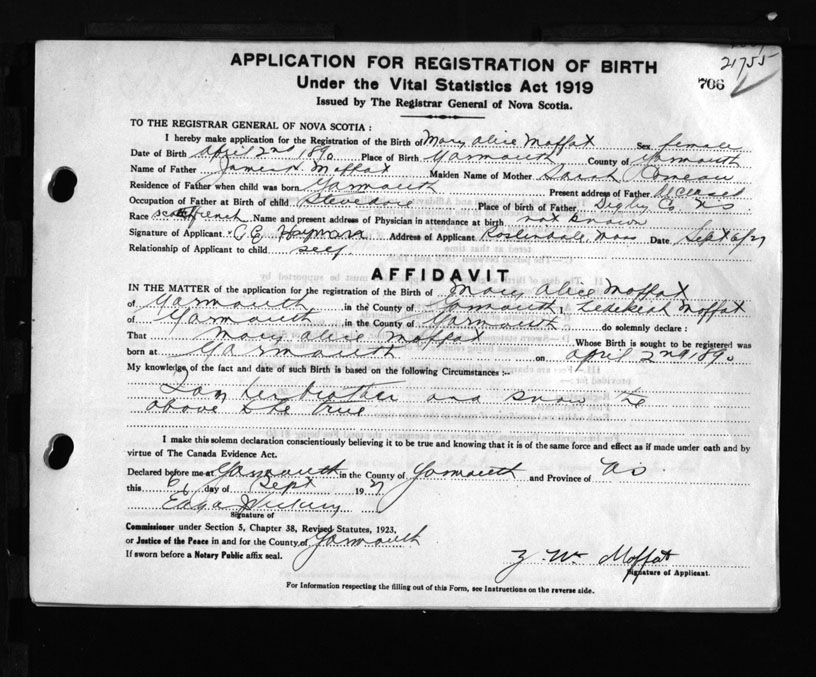 21755
706
APPLICATION FOR REGISTRATION OF BIRTH
Under the Vital Statistics Act 1919
Issued by The Registrar General of Nova Scotia.
TO THE REGISTRAR GENERAL OF NOVA SCOTIA :
I hereby make application for the Registration of the Birth of Mary Alice Moffat Sex female
Date of Birth April 2nd 1890 Place of Birth Yarmouth County of Yarmouth
Name of Father James Moffat Maiden Name of Mother Sarah Comeau
Residence of Father when child was born Yarmouth Present address of Father Deceased
Occupation of Father at Birth of child Stevedore Place of birth of Father Digby Co NS
Race Scotch French Name and present address of Physician in attendance at birth not known
Signature of Applicant Address of Applicant Roslindale Mass Date Sept 6/27
Relationship of Applicant to child self
AFFIDAVIT
IN THE MATTER of the application for the registration of the Birth of Mary Alice Moffat
of Yarmouth in the County of Yarmouth, Zedekiah Moffat
of Yarmouth in the County of Yarmouth do solemnly declare :
That Mary Alice Moffat Whose Birth is sought to be registered was
born at Yarmouth on April 2nd 1890
My knowledge of the fact and date of such Birth is based on the following Circumstances :-
I am her brother and know the
above to be true
I make this solemn declaration conscientiously believing it to be true and knowing that it is of the same force and effect as if made under oath and by
virtue of The Canada Evidence Act.
Declared before me at Yarmouth in the County of Yarmouth and Province of NS
this 6 day of Sept 1927
Signature of
Commissioner under Section 5, Chapter 38, Revised Statutes, 1923,
or Justice of the Peace in and for the County of Yarmouth
If sworn before a Notary Public affix seal.
Z. Wm Moffat
Signature of Applicant.
For Information respecting the filling out of this Form, see Instructions on the reverse side.